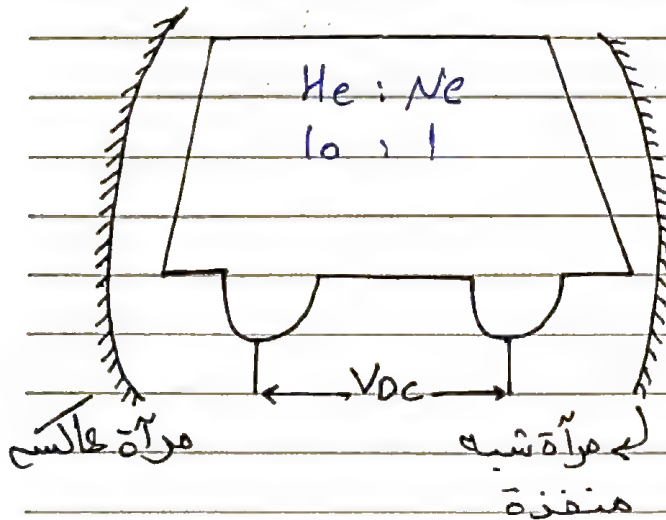 He : Ne
10 : 1
VDC
مرآة عاكسة
مرآة شبه
منفزة